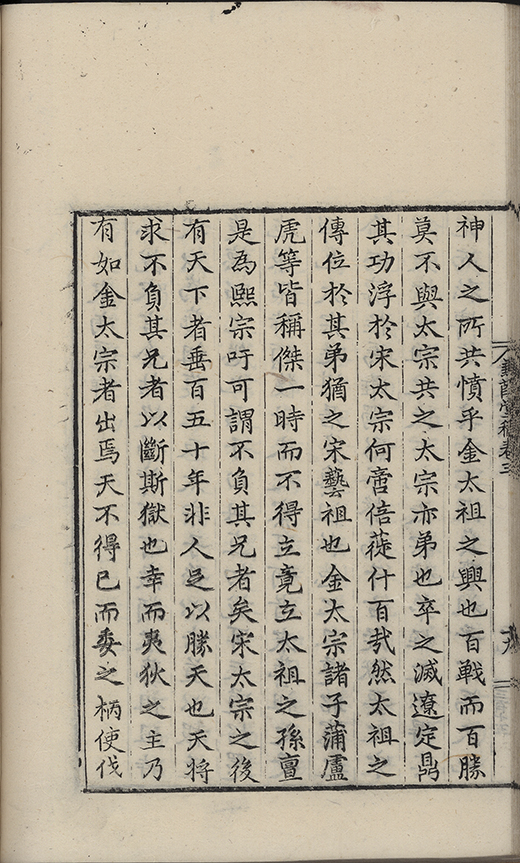 神人之所共憤乎金太祖之興也百戰而百勝
莫不與太宗共之太宗亦弟也卒之滅遼定鼎
其功浮於宋太宗何啻倍蓰什百㢤然太祖之
傳位於其弟猶之宋藝祖也金太宗諸子蒲盧
虎等皆稱傑一時而不得立竟立太祖之孫亶
是為熙宗吁可謂不負其兄者矣宋太宗之後
有天下者垂百五十年非人足以勝天也天將
求不負其兄者以斷斯獄也幸而夷狄之主乃
有如金太宗者出焉天不得已而委之柄使伐
卷三